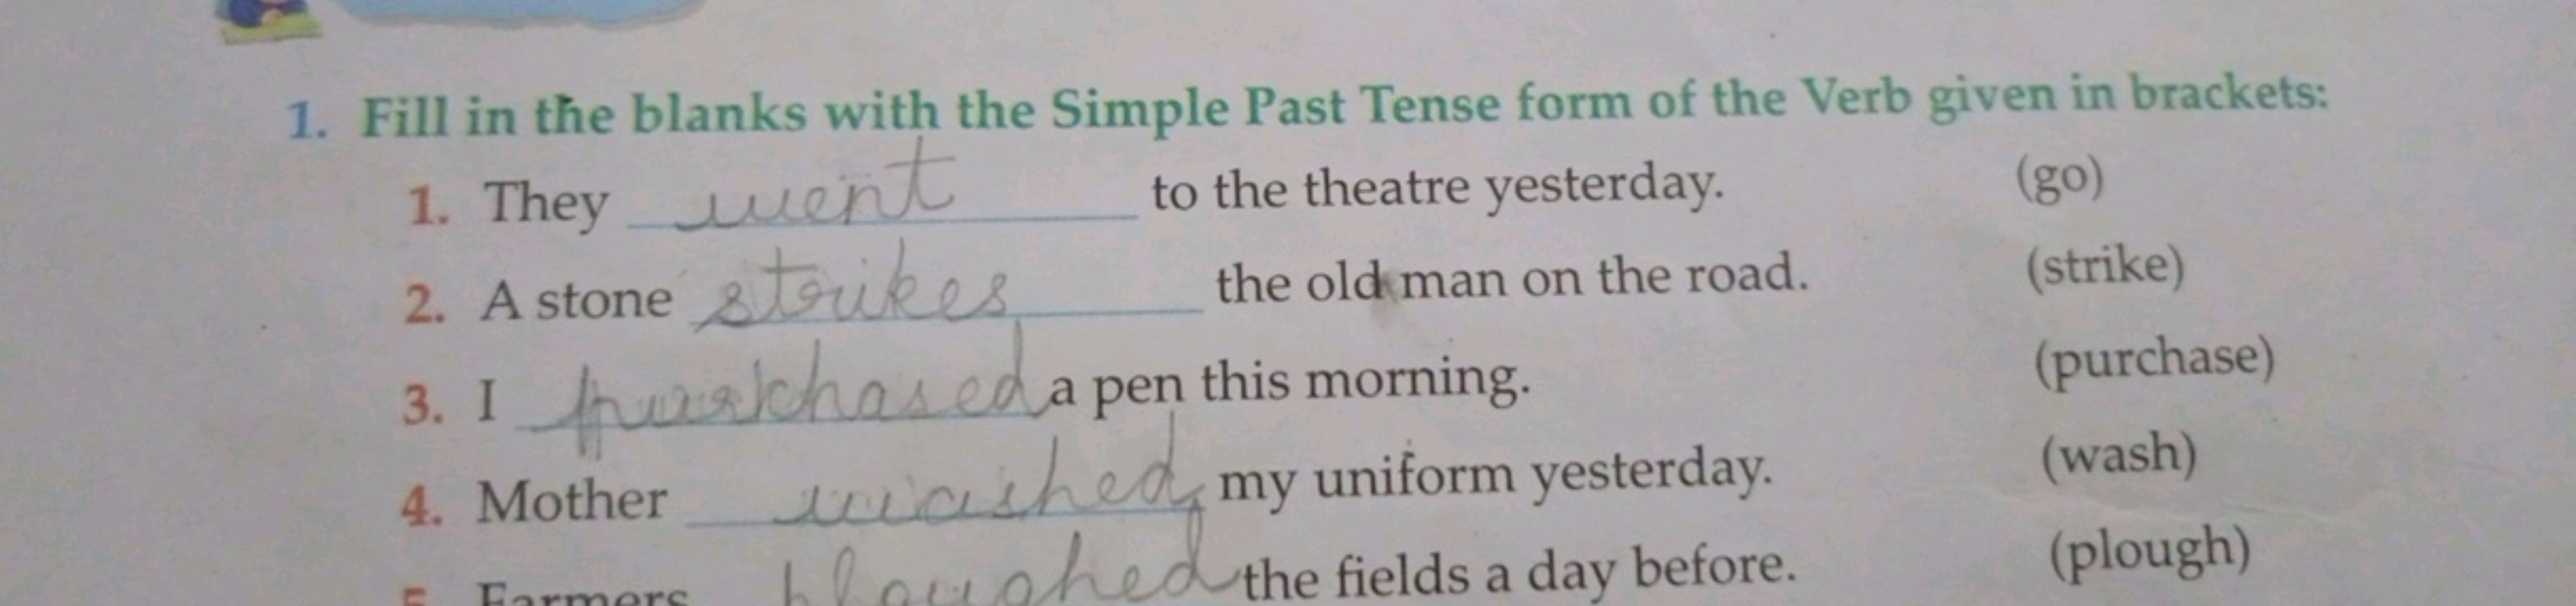 1. Fill in the blanks with the Simple Past Tense form of the Verb given in brackets:
1. They went to the theatre yesterday. (go)
2. A stone strikes the old man on the road. (strike)
3. I purchased a pen this morning. (purchase)
4. Mother washed my uniform yesterday. (wash)
5. Farmers ploughed the fields a day before. (plough)